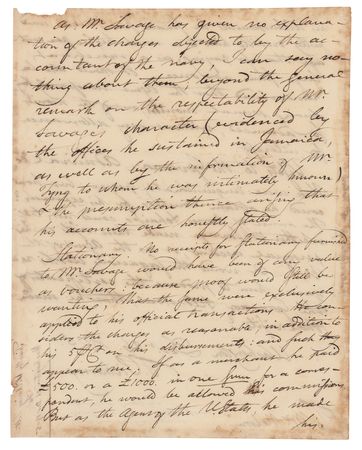 As Mr Savage has given no explana-
tion of the charges objected to by the ac-
countant of the navy, I can say no-
thing about them, beyond the general
remark on the respectability of Mr
Savage's character (evidenced by
the offices he sustained in Jamaica,
as well as by the information of Mr
Pyng to whom he was intimately known)
& the presumption thence arising that
his accounts are honestly stated.
Stationary No receipts for stationary furnished
to Mr Savage would have been of any value
as vouchers: because proof would still be
wanting, that the same were exclusively
applied to his official transactions. He con-
siders the charges as reasonable, in addition to
his 5 on his disbursements: and such they
appear to me. If as a merchant he paid
£500. or a £1000. in one sum for a corres-
pondent, he would be allowed his commission
But as the Agent of the U States, he made
his.